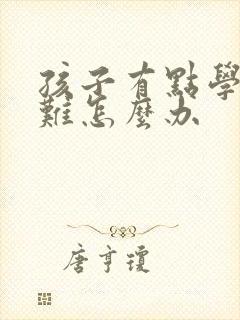 孩子有點學
難怎麼办
唐亨瓊